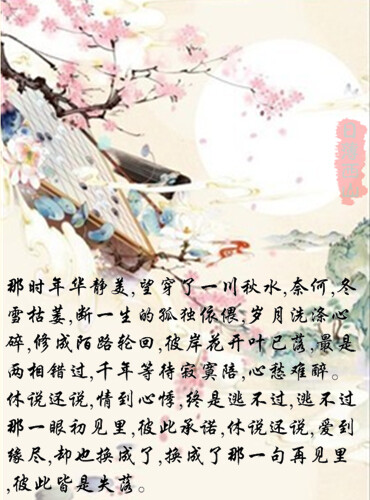 那时年华静美,望穿了一川秋水,奈何,冬
雪枯萎,断一生的孤独偎偎,岁月洗涤心
碎,修成陌路轮回,彼岸花开叶已落,最是
两相错过,千年等待寂寞陪,心愁难醉。
休说还说,情到心悸,终是逃不过,逃不过
那一眼初见里,彼此承诺,休说还说,爱到
缘尽,却也换成了,换成了那一句再见里
,彼此皆是失落。